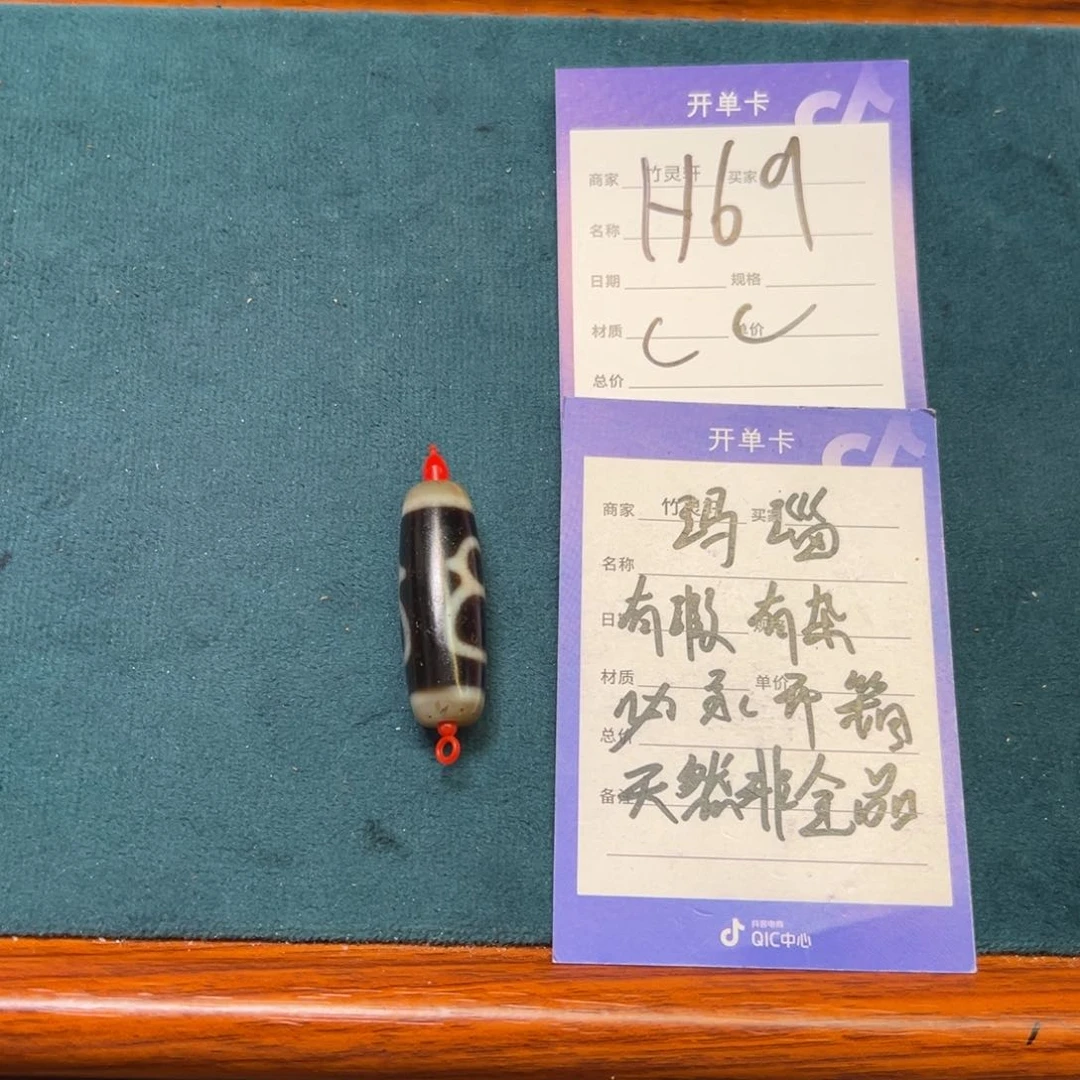 开单卡
商家 竹灵轩 买家
H69
名称
日期 规格
材质 单价
CC
总价
开单卡
商家 竹灵轩 买家
玛瑙
名称
有瑕 有杂
材质 单价
天然非全品
备注
抖音电商
QIC中心